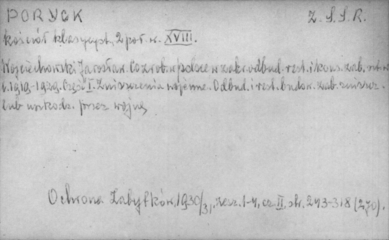 PORYCK Z.S.S.R.
kościół klasycyst., 2 poł. w. XVIII.
Wojciechowski Jarosław. Co zrob. w Polsce w zakr. odbud. rest. i kons. zab.
1919-1929. Część I. Zniszczenia wojenne. Odbud. i rest. budow. zab. zniszcz.
lub uszkodz. przez wojnę
Ochrona Zabytków, 1930/31, zesz. 1-4, cz. II, str. 243-318 (270).